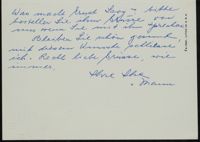 Was macht Ernst Levy - bitte
bestellen Sie ihm Grüsse von
uns wenn Sie mit ihm sprechen
Bleiben Sie schön gesund,
mit diesem Wunsche schliesse
ich. Recht liebe Grüsse, wie
immer,
Ihre Ilse